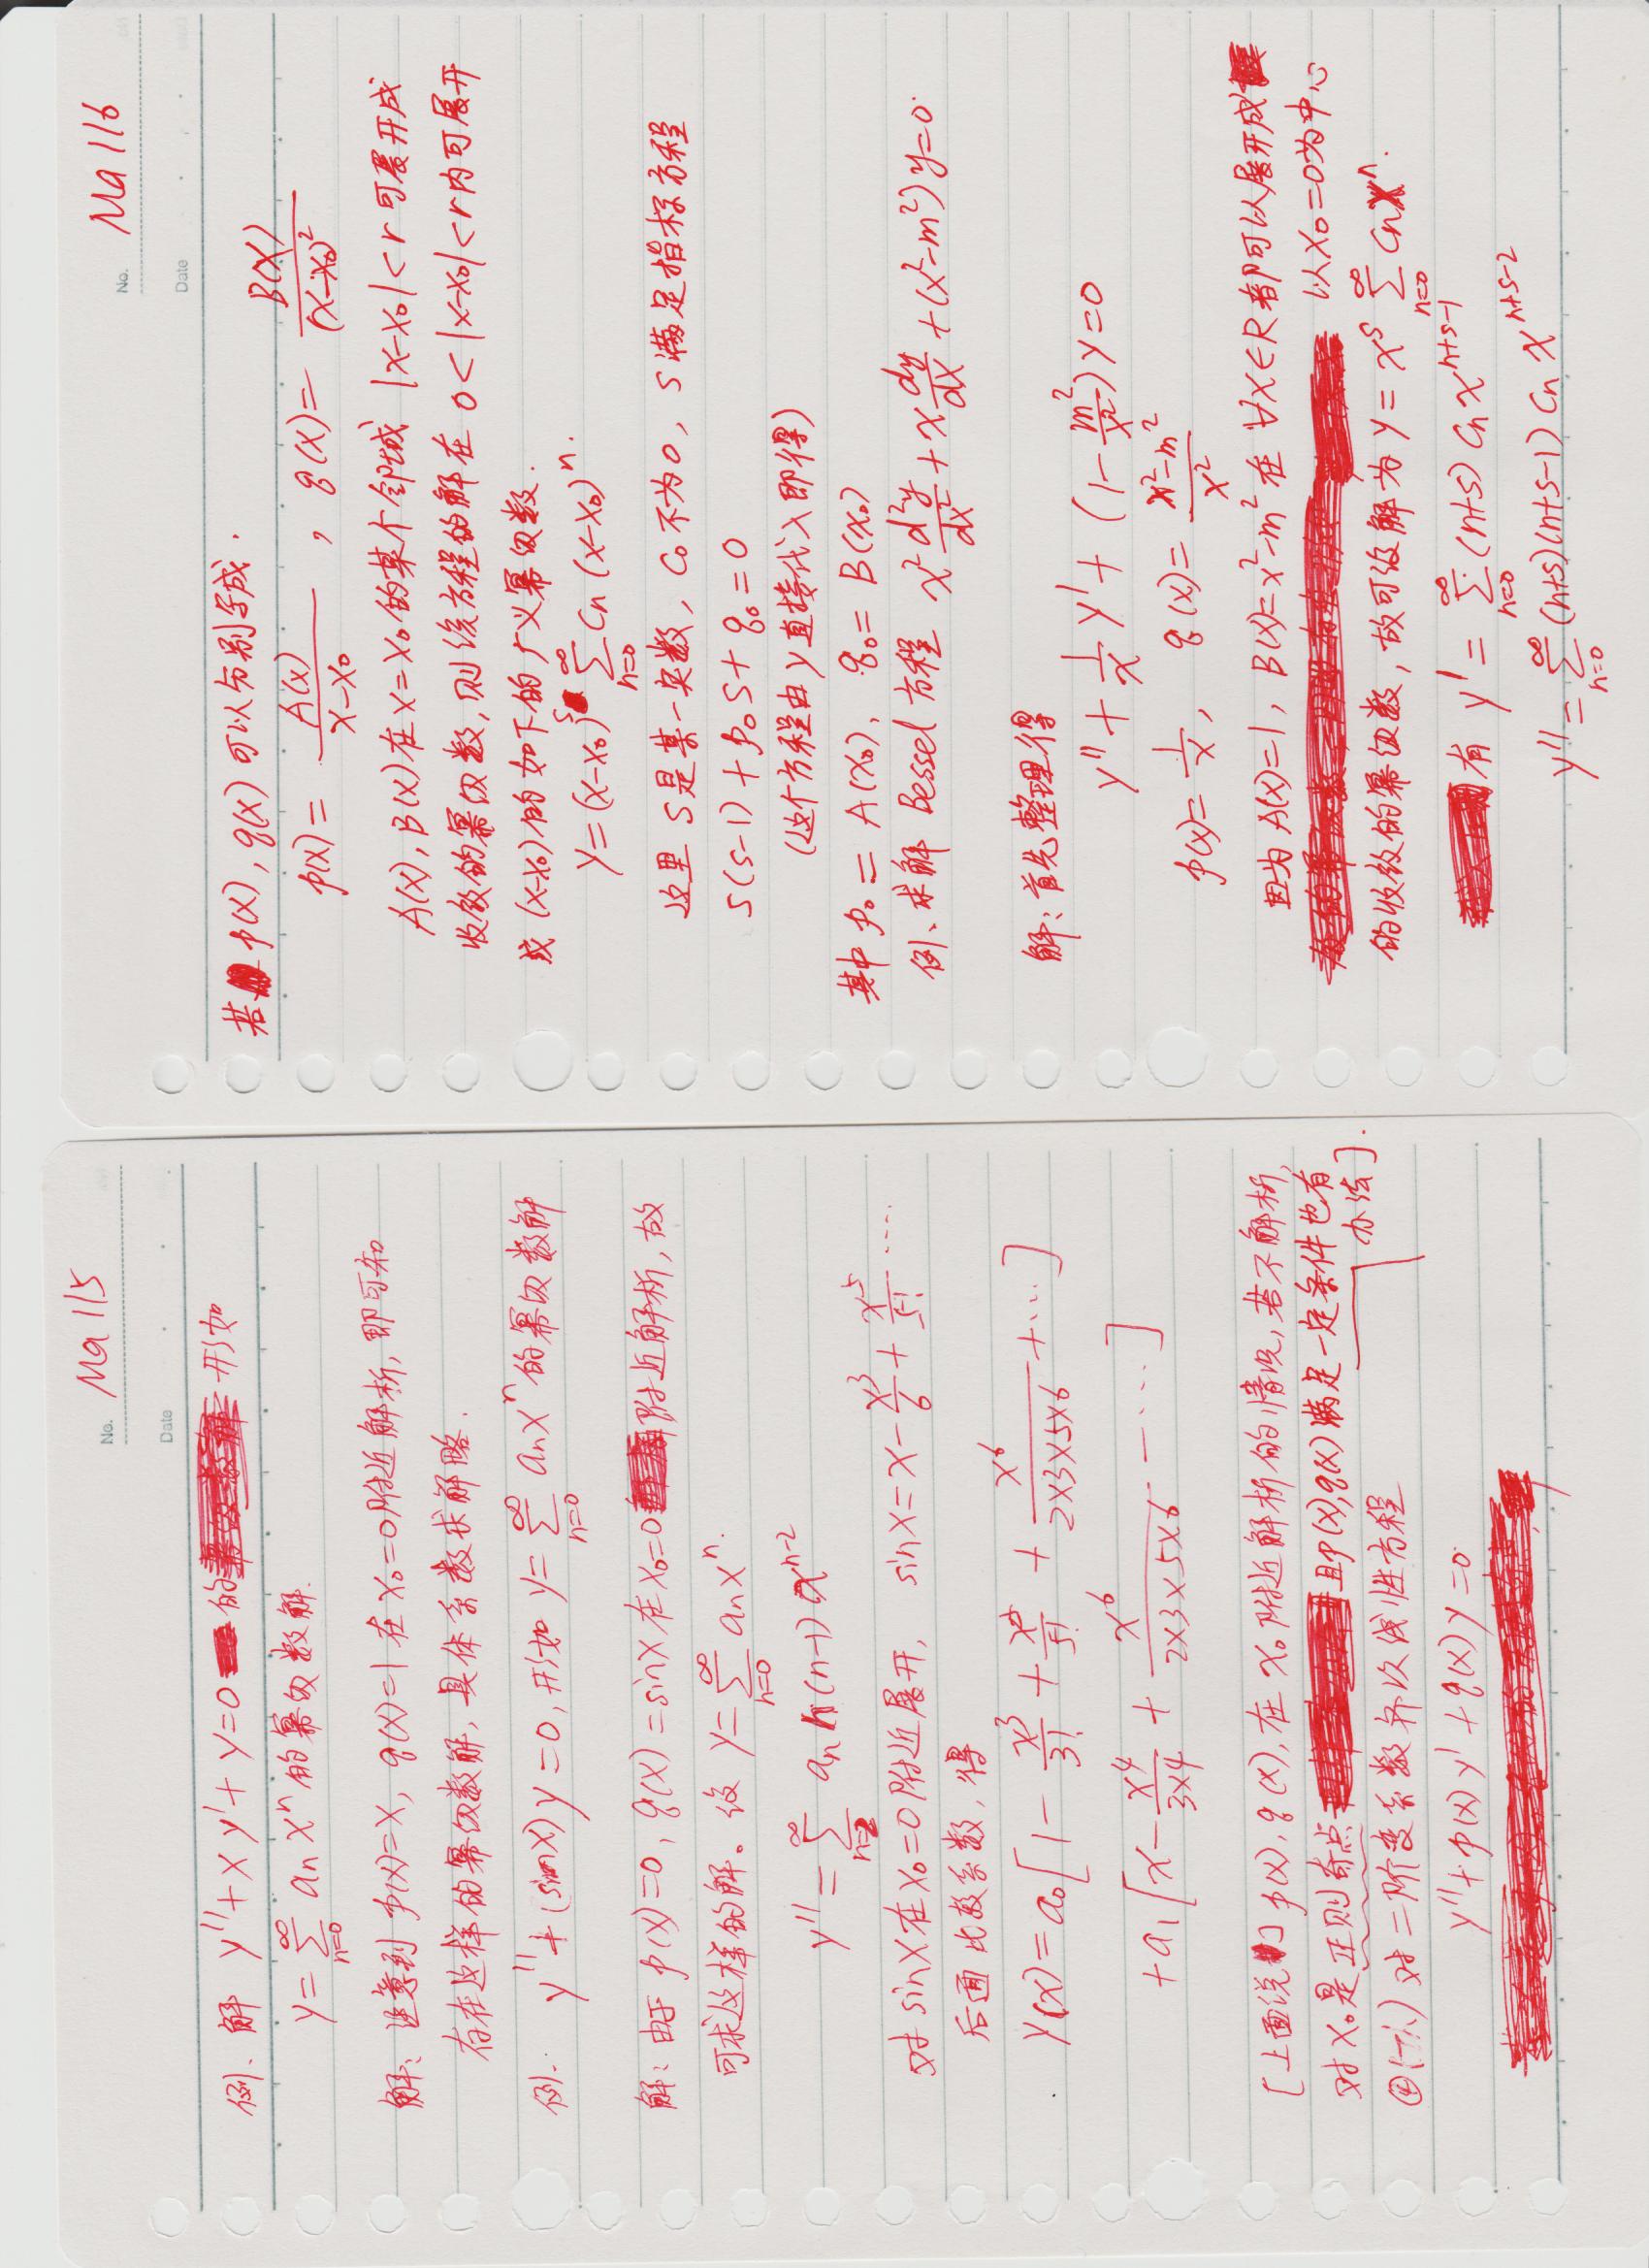 No. Ma 115
Date
例、解 y''+xy'+y=0 的 形如
y=∑_{n=0}^{∞} aₙxⁿ 的幂级数解.
解: 注意到 p(x)=x, q(x)=1 在 x₀=0 附近解析, 即可知
存在这样的幂级数解, 具体系数求解略.
例. y''+(sinx)y=0, 形如 y=∑_{n=0}^{∞} aₙxⁿ 的幂级数解
解: 由于 p(x)=0, q(x)=sinx 在 x₀=0 附近解析, 故
可求这样的解。设 y=∑_{n=0}^{∞} aₙxⁿ.
y''=∑_{n=2}^{∞} aₙ n(n-1) x^{n-2}
对 sinx 在 x₀=0 附近展开, sinx=x-x³/6+x⁵/5!……
后面比较系数, 得
y(x)=a₀[1-x³/3!+x⁵/5!+x⁶/(2×3×5×6)+…]
+a₁[x-x⁴/(3×4)+x⁶/(2×3×5×6)-……]
[上面说] p(x), q(x), 在 x₀ 附近解析的情况, 若不解析,
对 x₀ 是正则奇点 且p(x),q(x) 满足一定条件也有
办法].
④ 对二阶变系数齐次线性方程
y''+p(x)y'+q(x)y=0.
No. Ma 116
Date
若 p(x), q(x) 可以分别写成.
p(x)=A(x)/(x-x₀), q(x)=B(x)/(x-x₀)²
A(x), B(x) 在 x=x₀ 的某个邻域 |x-x₀|<r 可展开成
收敛的幂级数, 则该方程的解在 0<|x-x₀|<r 内可展开
成 (x-x₀) 的如下的广义幂级数.
y=(x-x₀)^s ∑_{n=0}^{∞} Cₙ(x-x₀)ⁿ.
这里 s 是某一实数, C₀ 不为 0, s 满足指标方程
s(s-1)+p₀s+q₀=0
(这个方程由 y 直接代入即得)
其中 p₀=A(x₀), q₀=B(x₀)
例、求解 Bessel 方程 x² d²y/dx²+x dy/dx+(x²-m²)y=0.
解: 首先整理得
y''+1/x y'+(1-m²/x²)y=0
p(x)=1/x, q(x)=(x²-m²)/x²
因为 A(x)=1, B(x)=x²-m² 在 ∀x∈R 都可以展开成
以 x₀=0 为中心
的收敛的幂级数, 故可设解为 y=x^s ∑_{n=0}^{∞} Cₙxⁿ.
有 y'=∑_{n=0}^{∞} (n+s) Cₙ x^{n+s-1}
y''=∑_{n=0}^{∞} (n+s)(n+s-1) Cₙ x^{n+s-2}